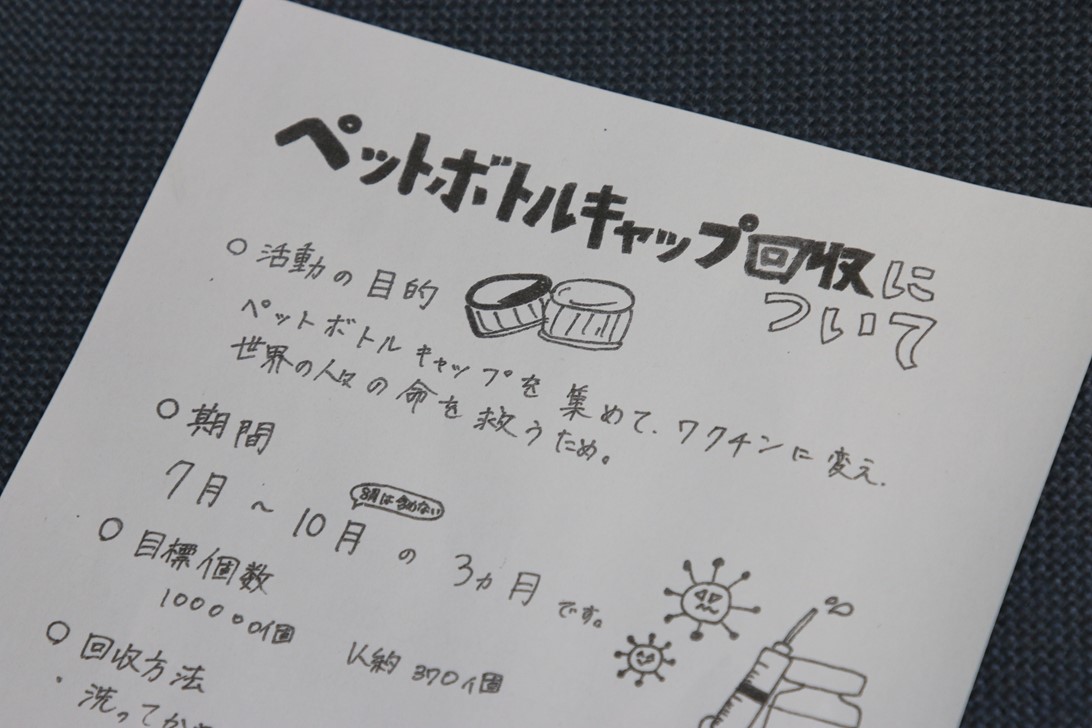 ペットボトルキャップ回収に
ついて
○ 活動の目的
ペットボトルキャップを集めて、ワクチンに変え、
世界の人々の命を救うため。
○ 期間
8月は含めない
7月 ~ 10月 の 3ヵ月 です。
○ 目標個数
10000個 1人約370個
○ 回収方法
・洗ってか